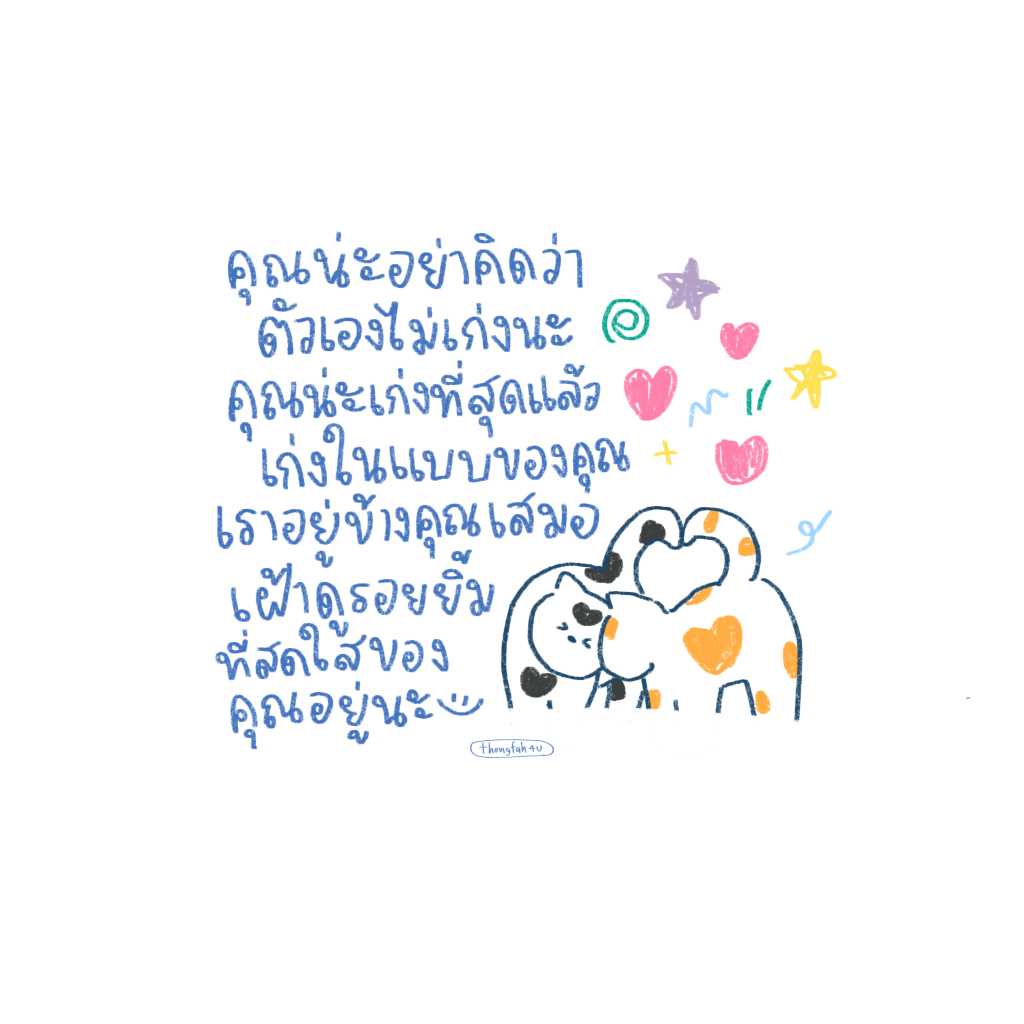 คุณน่ะอย่าคิดว่า
ตัวเองไม่เก่งนะ
คุณน่ะเก่งที่สุดแล้ว
เก่งในแบบของคุณ
เราอยู่ข้างคุณเสมอ
เฝ้าดูรอยยิ้ม
ที่สดใสของ
คุณอยู่นะ
thongfah4u